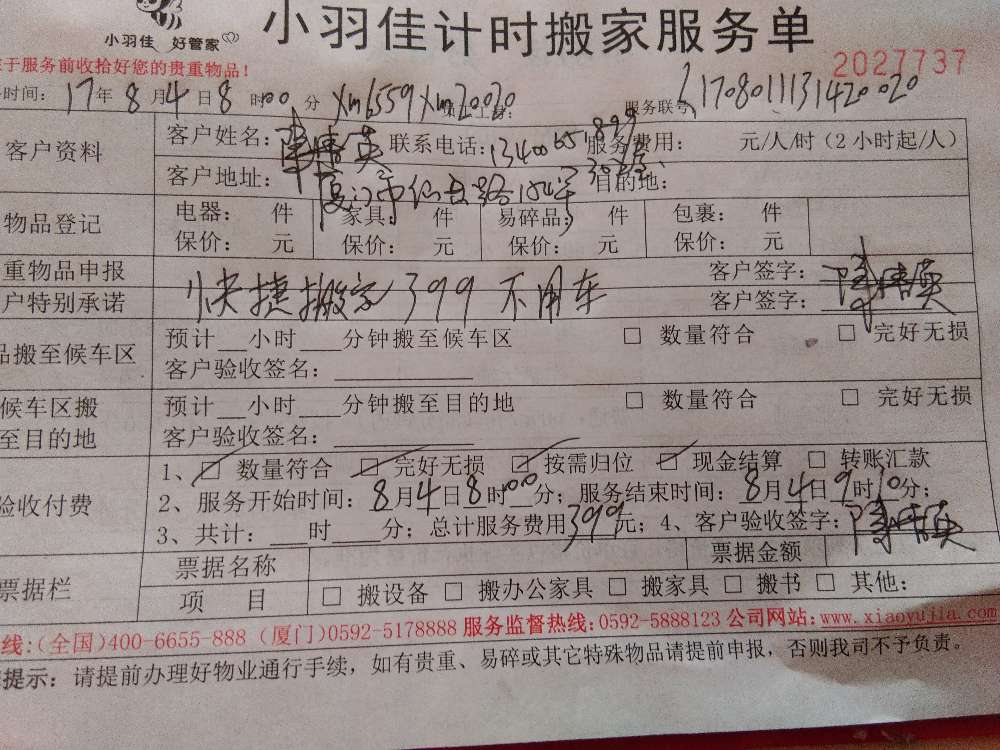 小羽佳 好管家
小羽佳计时搬家服务单
于服务前收拾好您的贵重物品!
2027737
时间: 17年8月4日8时00分 Xm6559 Xm20020 服务联号: 1708011131420020
客户资料 客户姓名: 联系电话: 服务费用: 元/人/时(2小时起/人)
客户地址: 厦门市仙岳路 目的地:
物品登记 电器: 件 家具: 件 易碎品: 件 包裹: 件
保价: 元 保价: 元 保价: 元 保价: 元
重物品申报 客户签字:
户特别承诺 快捷搬家399不用车 客户签字:
品搬至候车区 预计__小时___分钟搬至候车区 □ 数量符合 □ 完好无损
客户验收签名:
候车区搬至目的地 预计__小时___分钟搬至目的地 □ 数量符合 □ 完好无损
客户验收签名:
验收付费 1、☑ 数量符合 ☑ 完好无损 ☑ 按需归位 ☑ 现金结算 □ 转账汇款
2、服务开始时间: 8月4日8时00分; 服务结束时间: 8月4日9时10分;
3、共计:___时____分; 总计服务费用399元; 4、客户验收签字:
票据栏 票据名称 票据金额
项 目 □ 搬设备 □ 搬办公家具 □ 搬家具 □ 搬书 □ 其他:
线:(全国)400-6655-888 (厦门)0592-5178888 服务监督热线:0592-5888123 公司网站:www.xiaoyujia.com
提示: 请提前办理好物业通行手续,如有贵重、易碎或其它特殊物品请提前申报,否则我司不予负责。